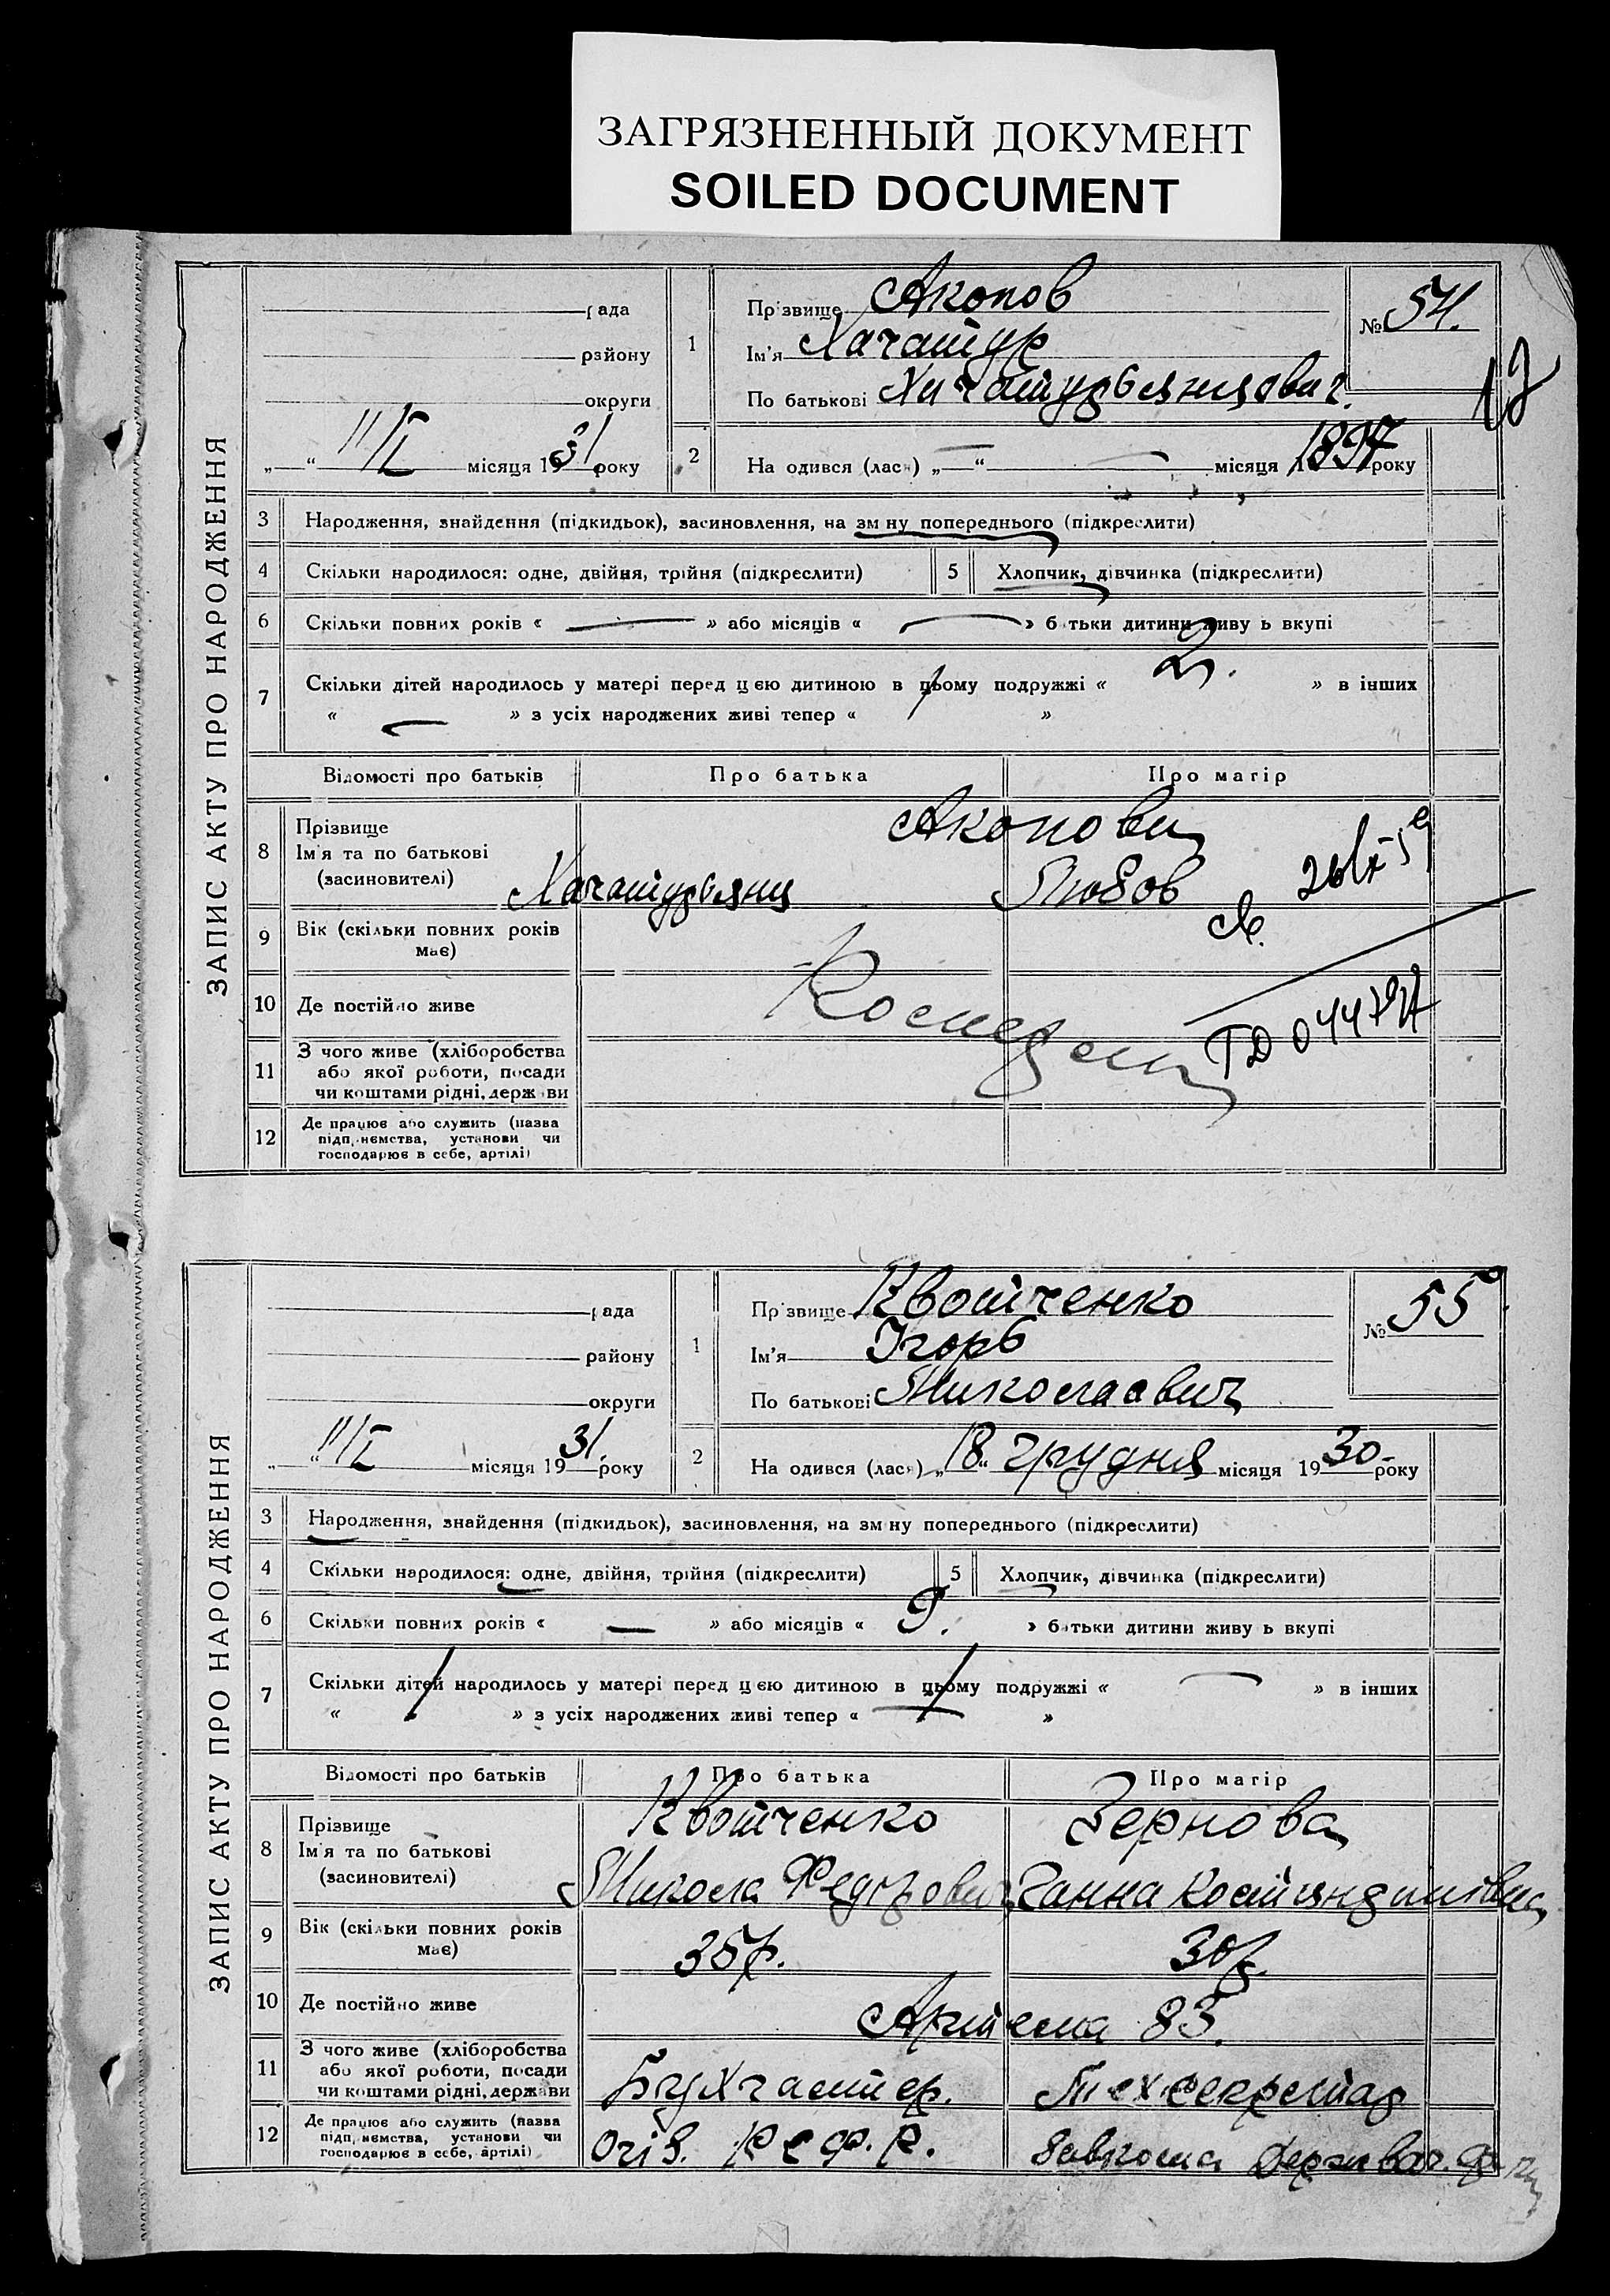 ЗАГРЯЗНЕННЫЙ ДОКУМЕНТ
SOILED DOCUMENT
ЗАПИС АКТУ ПРО НАРОДЖЕННЯ
рада
району
округи
„ “ 11/I місяця 1931 року
1
Прізвище Акопов
Ім'я Хачатур
По батькові
№ 54.
2
На одився (лася) „—“ — місяця 1897 року
3 Народження, знайдення (підкидьок), засиновлення, на зм ну попереднього (підкреслити)
4 Скільки народилося: одне, двійня, трійня (підкреслити)
5 Хлопчик, дівчинка (підкреслити)
6 Скільки повних років « — » або місяців « — » б тьки дитини живу ь вкупі
7 Скільки дітей народилось у матері перед ц ею дитиною в цьому подружжі « 2. » в інших
« — » з усіх народжених живі тепер « »
Відомості про батьків
Про батька
Про матір
8 Прізвище
Ім'я та по батькові
(засиновителі)
Акопови
Хачатурьянц
Любов
9 Вік (скільки повних років
має)
10 Де постійно живе
11 З чого живе (хліборобства
або якої роботи, посади
чи коштами рідні, держ ви
12 Де працює або служить (назва
підп, иємства, установи чи
господарює в себе, артілі)
ЗАПИС АКТУ ПРО НАРОДЖЕННЯ
рада
району
округи
„ “ 11/I місяця 1931. року
1
Прізвище Квотченко
Ім'я Ігорь
По батькові Миколаєвич
№ 55
2
На одився (лася) „18“ грудня місяця 1930 року
3 Народження, знайдення (підкидьок), засиновлення, на зм ну попереднього (підкреслити)
4 Скільки народилося: одне, двійня, трійня (підкреслити)
5 Хлопчик, дівчинка (підкреслити)
6 Скільки повних років « — » або місяців « 9. » батьки дитини живу ь вкупі
7 Скільки дітей народилось у матері перед ц ею дитиною в цьому подружжі « — » в інших
« » з усіх народжених живі тепер « — »
Відомості про батьків
Про батька
Про матір
8 Прізвище
Ім'я та по батькові
(засиновителі)
Квотченко
Микола Федорович
Зернова
Ганна Костянтинівна
9 Вік (скільки повних років
має)
35 р.
30 р.
10 Де постійно живе
Артема 83.
11 З чого живе (хліборобства
або якої роботи, посади
чи коштами рідні, держави
Бухгалтер.
Техсекретар
12 Де працює або служить (назва
підп, иємства, установи чи
господарює в себе, артілі)